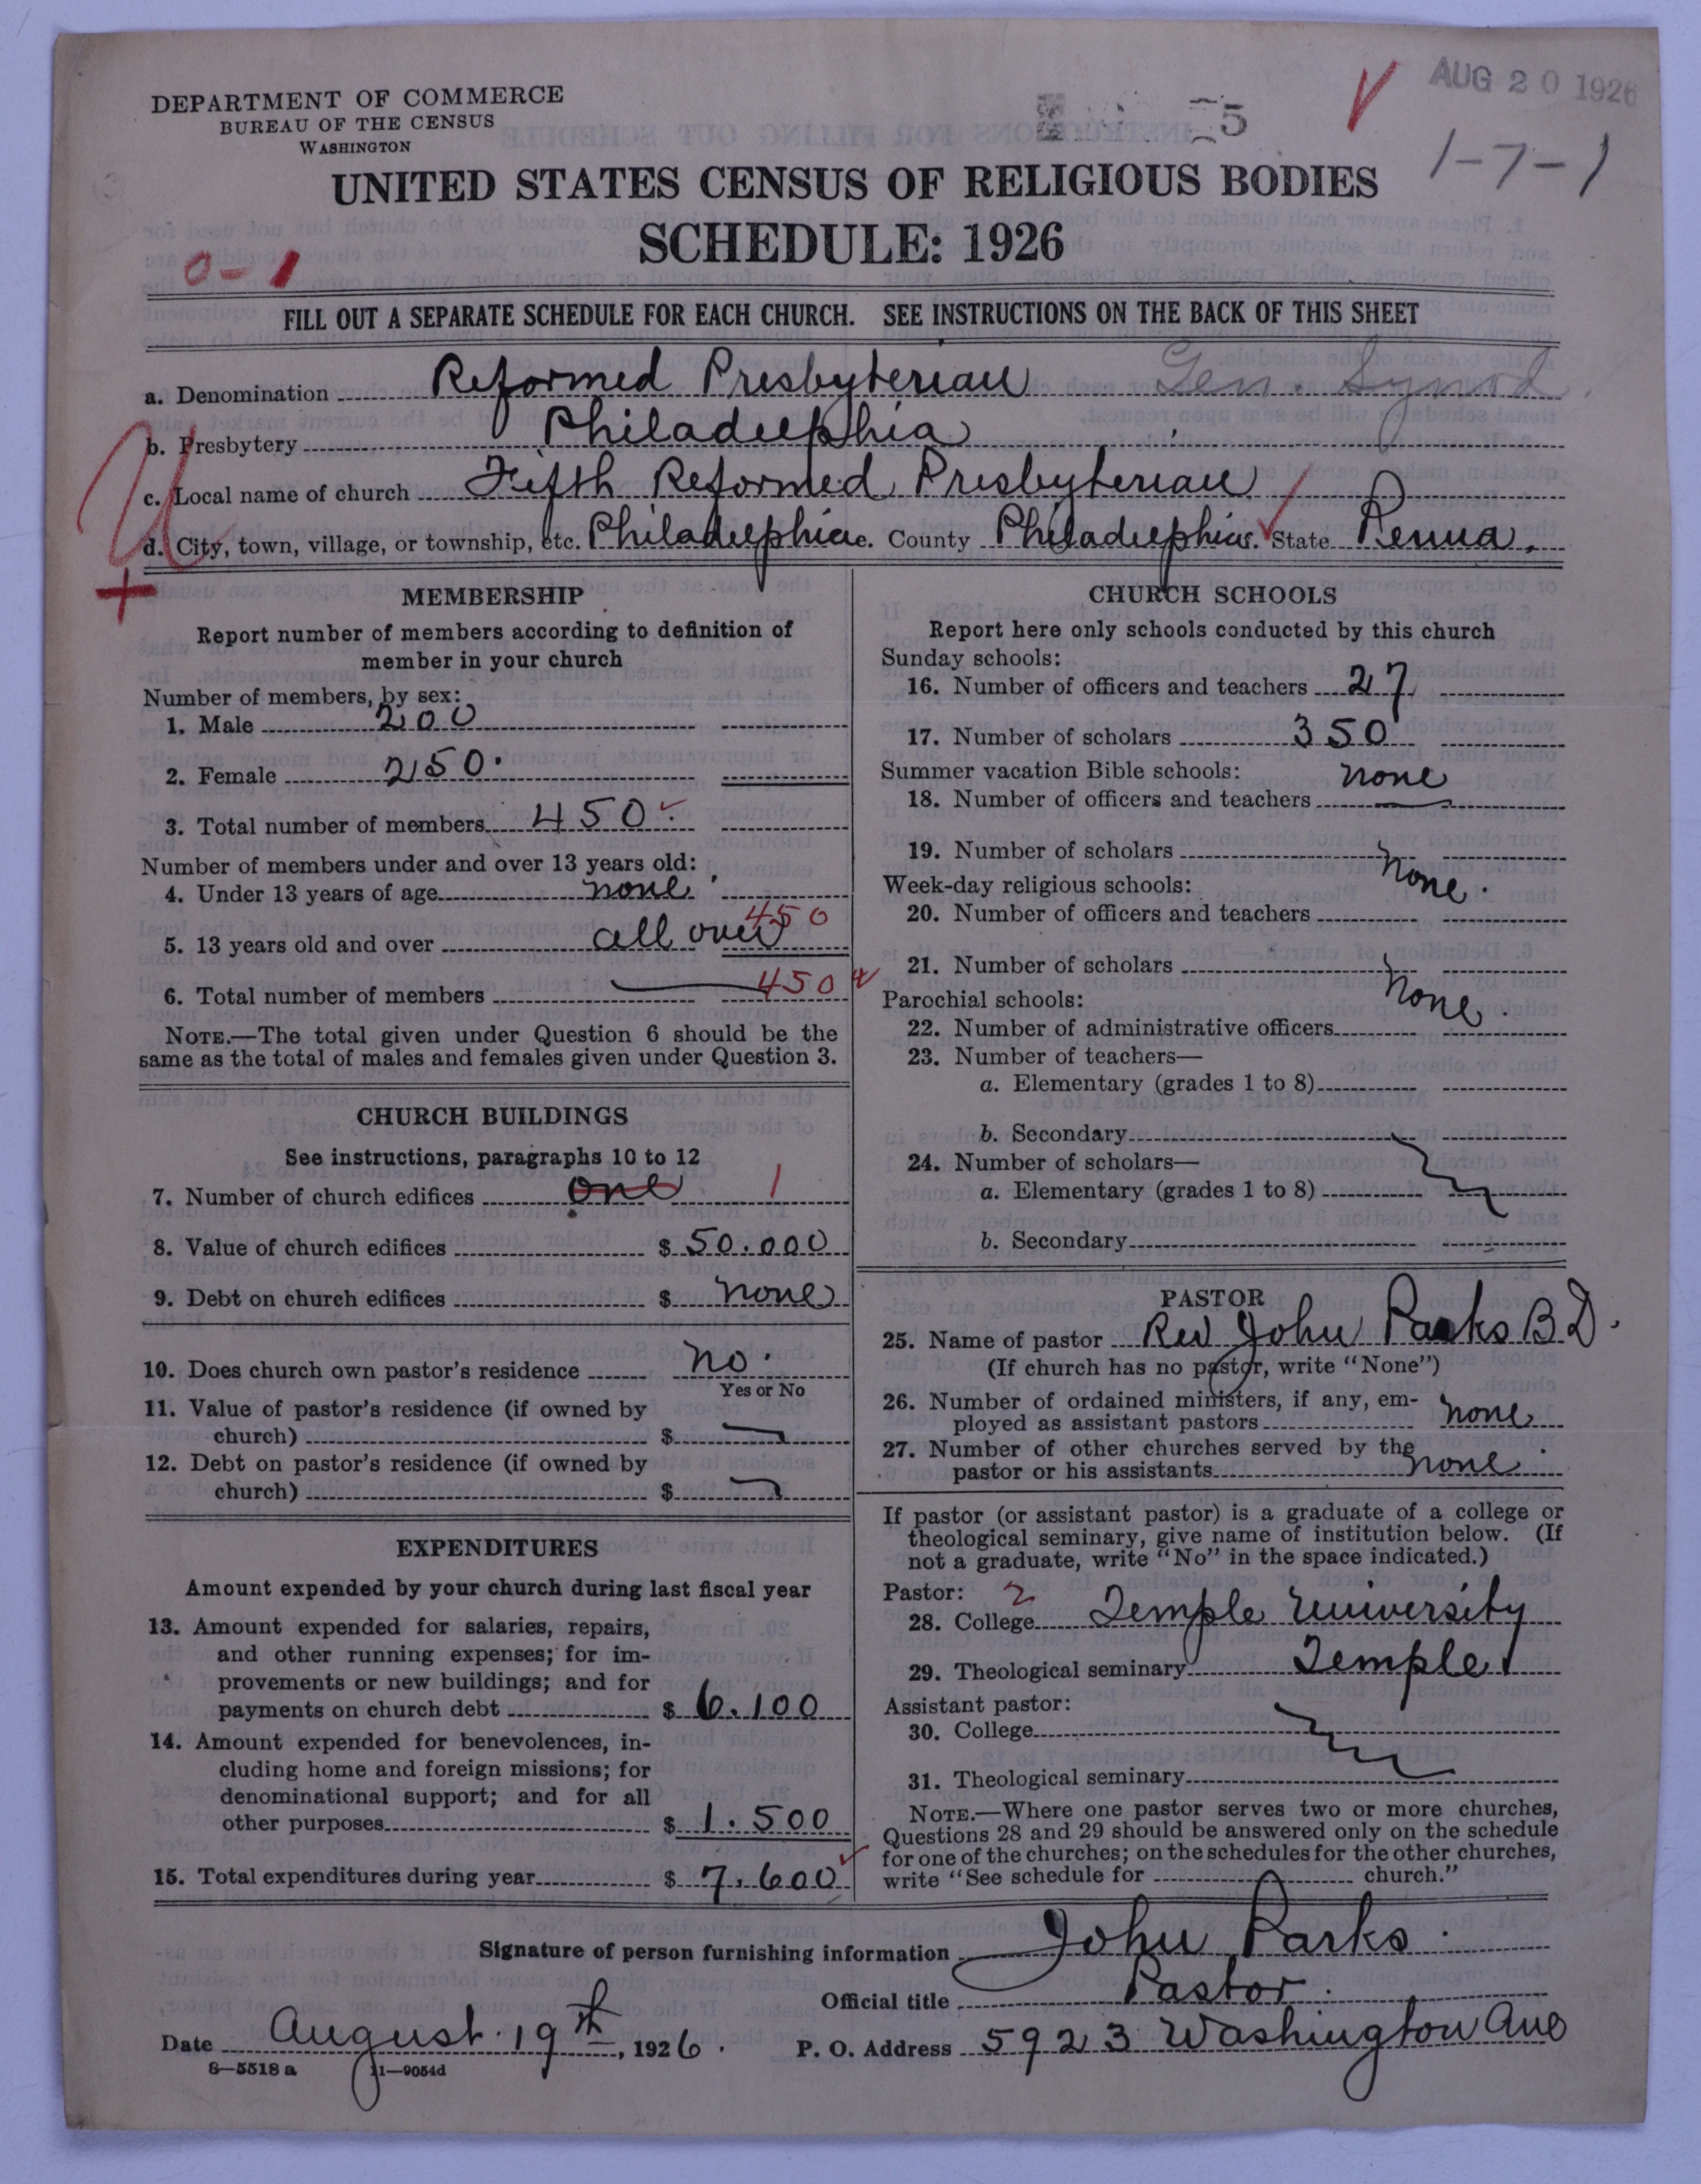 AUG 20 1926
DEPARTMENT OF COMMERCE
BUREAU OF THE CENSUS
WASHINGTON
5
1-7-1
UNITED STATES CENSUS OF RELIGIOUS BODIES
SCHEDULE: 1926
0-1
FILL OUT A SEPARATE SCHEDULE FOR EACH CHURCH. SEE INSTRUCTIONS ON THE BACK OF THIS SHEET
a. Denomination Reformed Presbyterian Gen. Synod
b. Presbytery Philadelphia
c. Local name of church Fifth Reformed Presbyterian
d. City, town, village, or township, etc. Philadelphia. County Philadelphia. State Penna.
MEMBERSHIP
Report number of members according to definition of
member in your church
Number of members, by sex:
1. Male 200
2. Female 250.
3. Total number of members 450
Number of members under and over 13 years old:
4. Under 13 years of age none
5. 13 years old and over all over 450
6. Total number of members 450
NOTE.—The total given under Question 6 should be the
same as the total of males and females given under Question 3.
CHURCH BUILDINGS
See instructions, paragraphs 10 to 12
7. Number of church edifices one 1
8. Value of church edifices $ 50.000
9. Debt on church edifices $ none
10. Does church own pastor's residence no.
Yes or No
11. Value of pastor's residence (if owned by
church) $
12. Debt on pastor's residence (if owned by
church) $
EXPENDITURES
Amount expended by your church during last fiscal year
13. Amount expended for salaries, repairs,
and other running expenses; for im-
provements or new buildings; and for
payments on church debt $ 6.100
14. Amount expended for benevolences, in-
cluding home and foreign missions; for
denominational support; and for all
other purposes $ 1.500
15. Total expenditures during year $ 7.600
CHURCH SCHOOLS
Report here only schools conducted by this church
Sunday schools:
16. Number of officers and teachers 27
17. Number of scholars 350
Summer vacation Bible schools: none
18. Number of officers and teachers
19. Number of scholars
Week-day religious schools: none.
20. Number of officers and teachers
21. Number of scholars
Parochial schools: none.
22. Number of administrative officers
23. Number of teachers—
a. Elementary (grades 1 to 8)
b. Secondary
24. Number of scholars—
a. Elementary (grades 1 to 8)
b. Secondary
PASTOR
25. Name of pastor Rev John Parks B D.
(If church has no pastor, write "None")
26. Number of ordained ministers, if any, em-
ployed as assistant pastors none
27. Number of other churches served by the
pastor or his assistants none.
If pastor (or assistant pastor) is a graduate of a college or
theological seminary, give name of institution below. (If
not a graduate, write "No" in the space indicated.)
Pastor: 2
28. College Temple University
29. Theological seminary Temple.
Assistant pastor:
30. College
31. Theological seminary
NOTE.—Where one pastor serves two or more churches,
Questions 28 and 29 should be answered only on the schedule
for one of the churches; on the schedules for the other churches,
write "See schedule for church."
Signature of person furnishing information John Parks.
Official title Pastor.
Date August 19th, 1926. P. O. Address 5923 Washington Ave
8—5518 a 11—9054d